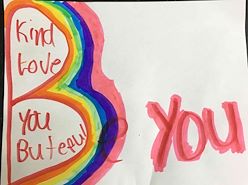 Kind
Love
You
Buteful
You